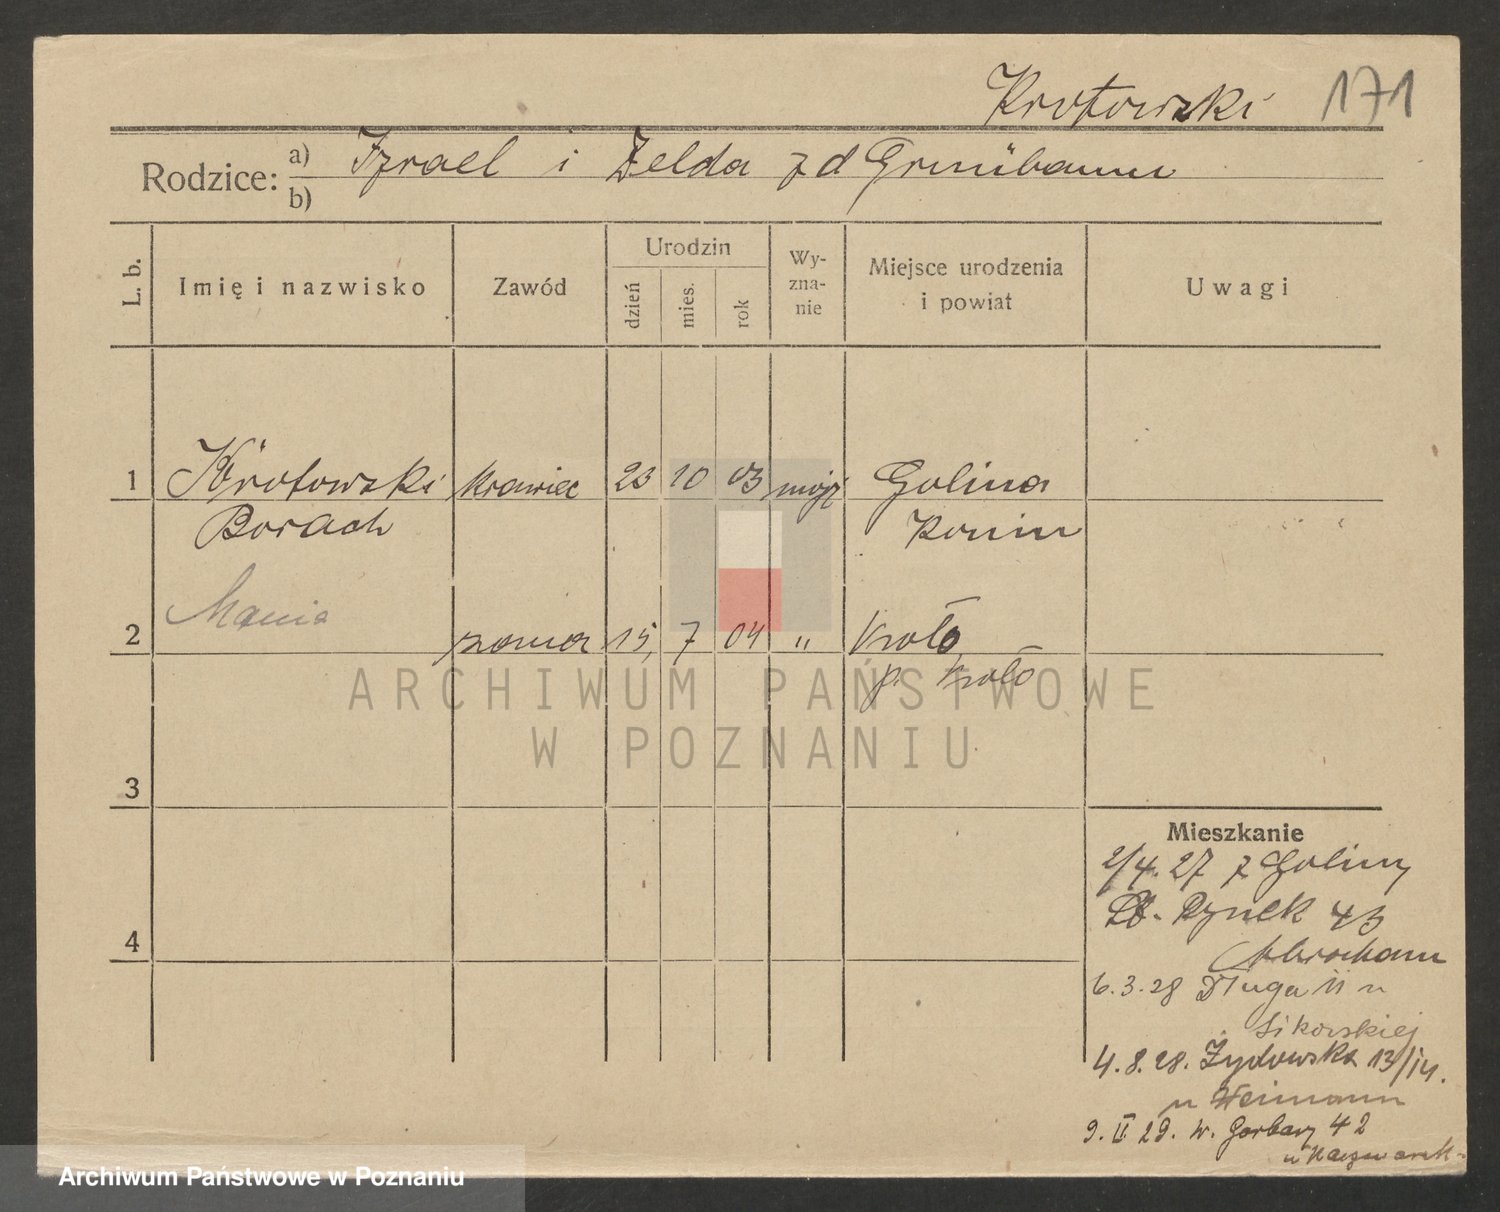 Krotowski 171
Rodzice: a) Izrael i Zelda z d Grünbaum
b)
L. b.
Imię i nazwisko
Zawód
Urodzin
dzień
mies.
rok
Wy-
zna-
nie
Miejsce urodzenia
i powiat
Uwagi
1 Krotowski krawiec 23 10 03 mojż Golina
Borach Konin
Mania
2 żona 15, 7 04 " Koło
p. Koło
ARCHIWUM PAŃSTWOWE
W POZNANIU
3
4
Mieszkanie
2/4. 27 z Goliny
St. Rynek 43
Abraham
6.3.28 Długa 11 u
Sikorskiej
4.8.28. Żydowska 13/14.
u Weimann
9. II 29. W. Garbary 42
Archiwum Państwowe w Poznaniu